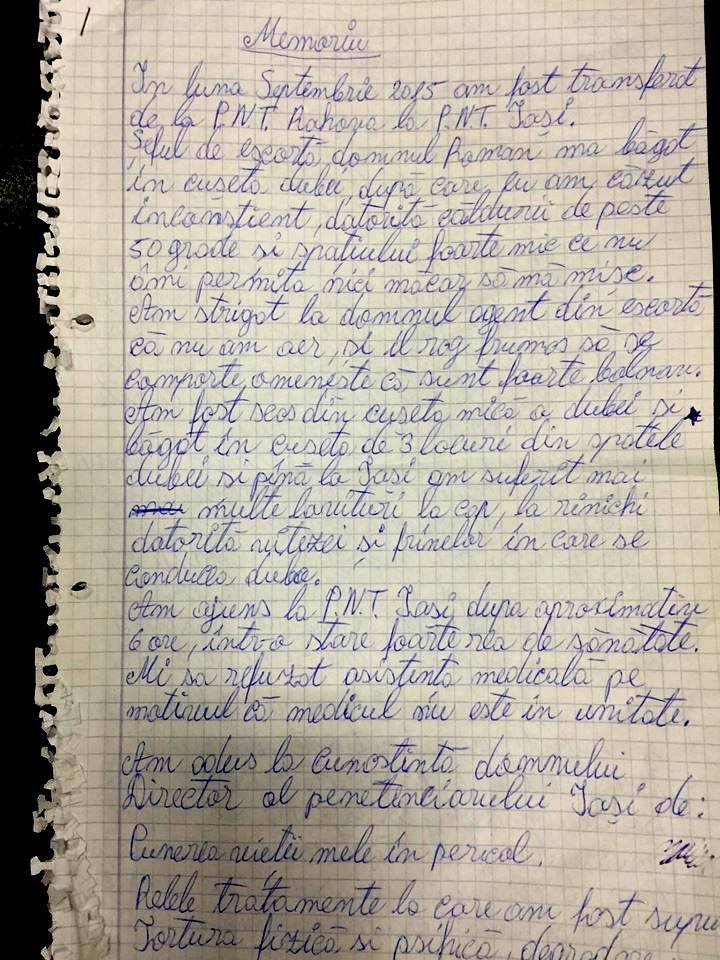 1
Memoriu
In luna Septembrie 2015 am fost transferat
de la P.N.T. Rahova la P.N.T. Iași.
Șeful de escortă, domnul Roman ma băgat
în cușeta dubei, după care eu am căzut
inconștient, datorită căldurii de peste
50 grade si spațiului foarte mic ce nu
îmi permita nici macar să mă misc.
Am strigat la domnul agent din escortă
că nu am aer, si îl rog frumos să se
comporte omenește că sunt foarte bolnav.
Am fost scos din cușeta mică a dubei si
băgat în cuseta de 3 locuri din spatele
dubei si pînă la Iasi am suferit mai
multe lovituri la cap, la rinichi
datorită vitezei și frinelor in care se
conducea duba.
Am ajuns la P.N.T. Iasi dupa aproximativ
6 ore, într-o stare foarte rea de sănătate.
Mi sa refuzat asistenta medicală pe
motivul că medicul nu este in unitate.
Am adus la cunostintă domnului
Director al penetinciarului Iași de:
Punerea vietii mele în pericol.
Relele tratamente la care am fost supu
Tortura fizică si psihică,